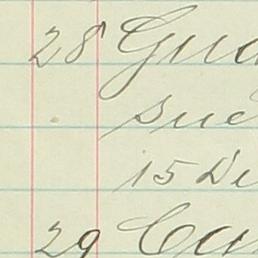 28 Gua
Sue
15 De
29 Ca